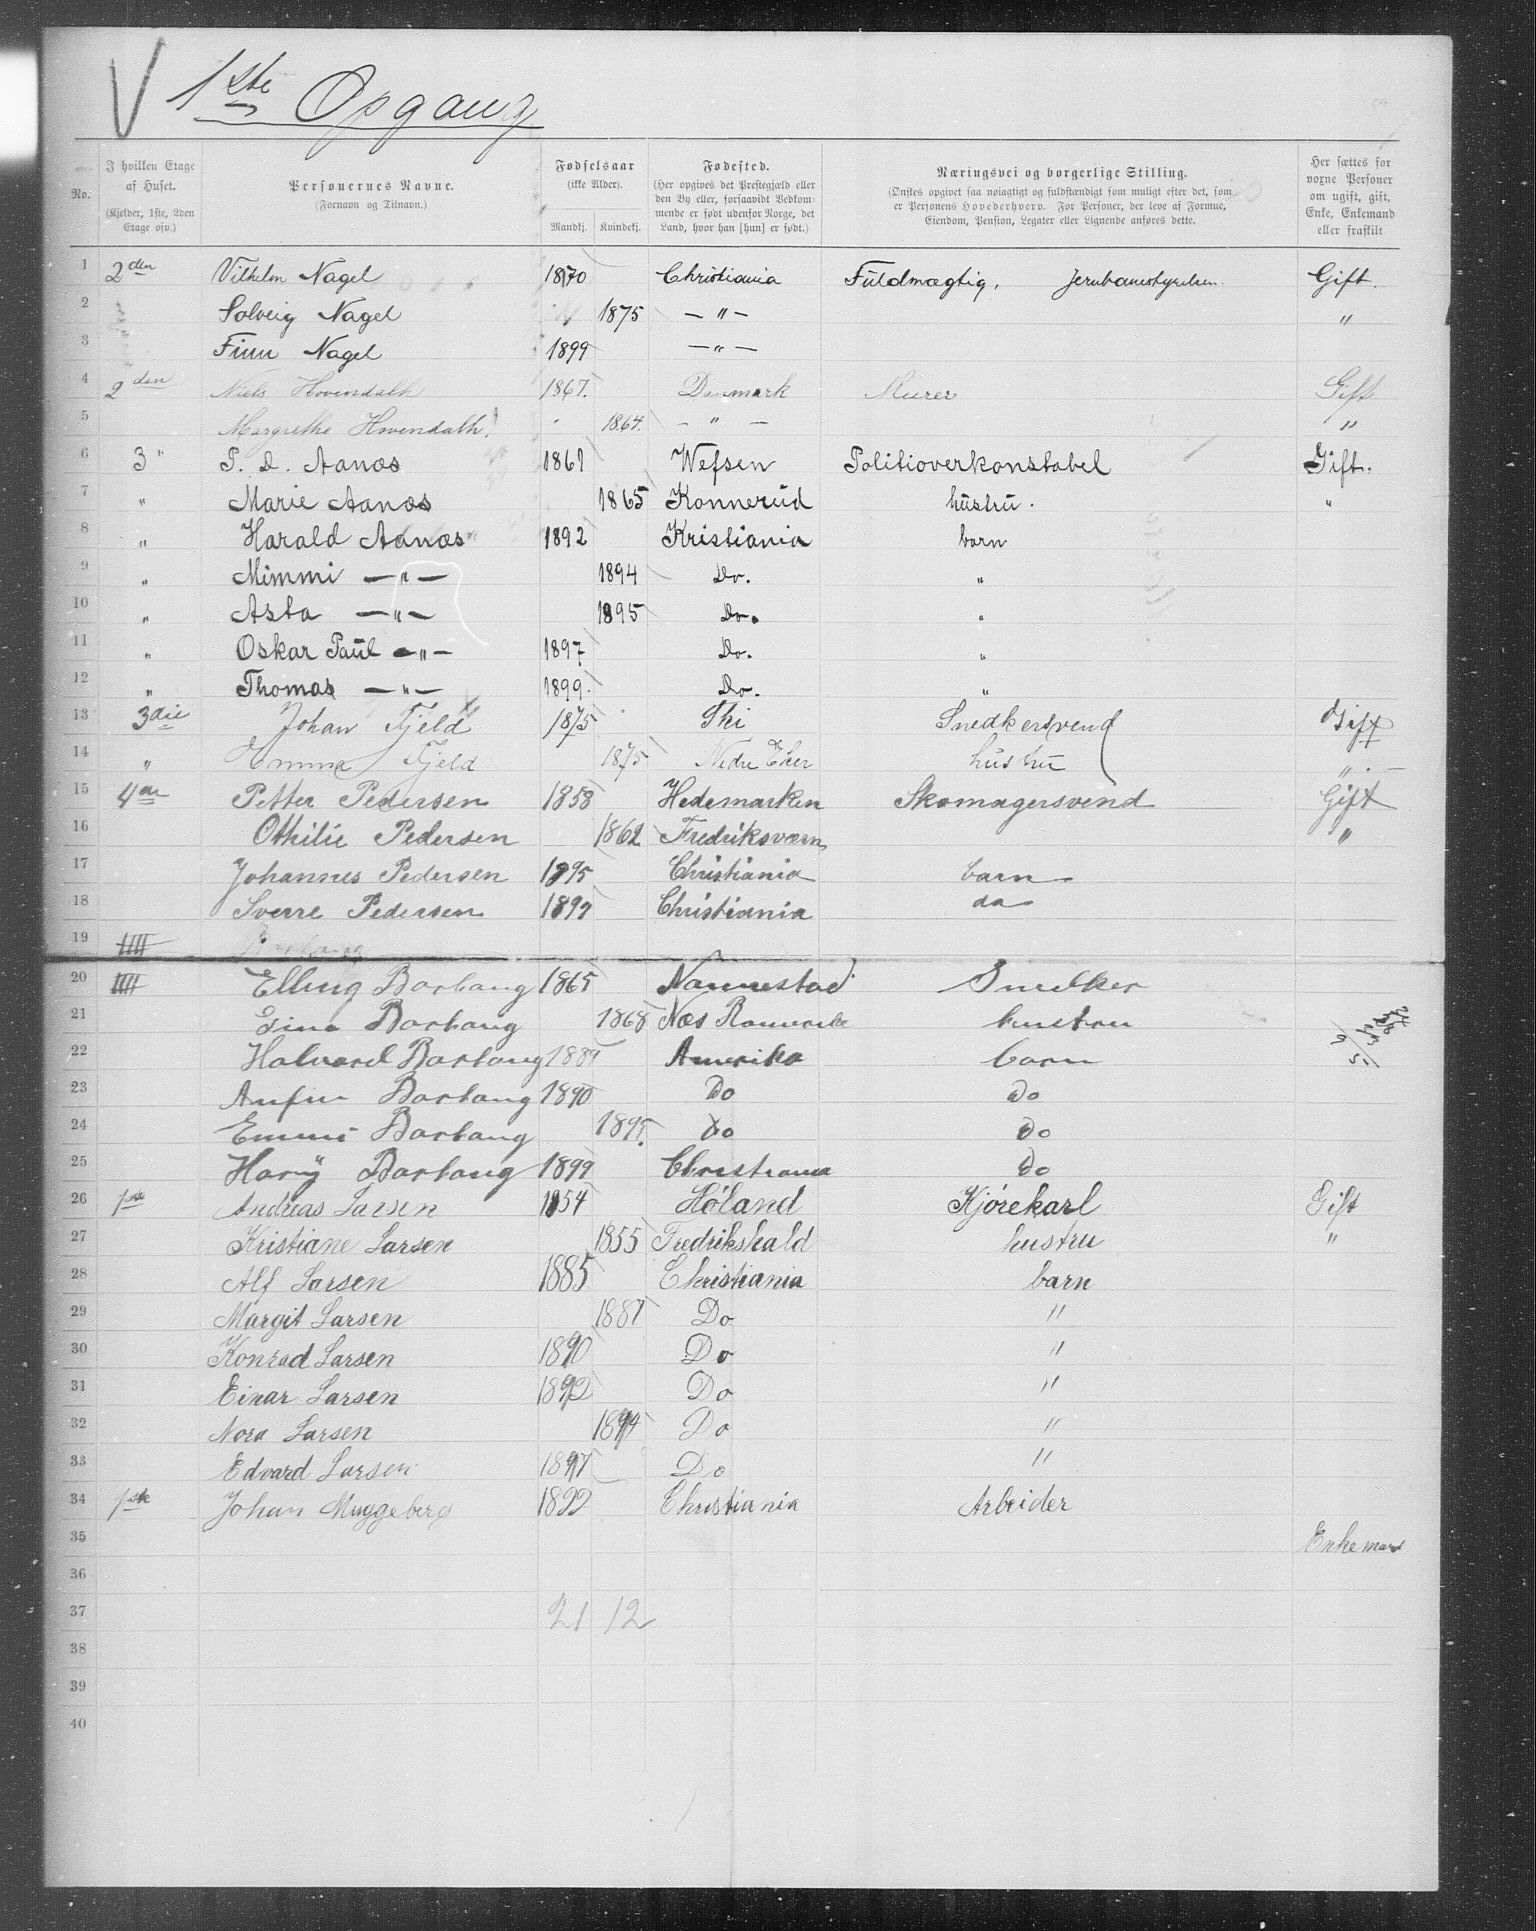 V 1ste Opgang
No.
I hvilken Etage af Huset. (Kjelder, 1ste, 2den Etage osv.)
Personernes Navne. (Fornavn og Tilnavn.)
Fødselsaar (ikke Alder). Mandkj. Kvindekj.
Fødested. (Her opgives det Prestegjæld eller den By eller, forsaavidt Vedkommende er født udenfor Norge, det Land, hvor han [hun] er født.)
Næringsvei og borgerlige Stilling. (Ønskes opgivet saa nøiagtigt og fuldstændigt som muligt efter det, som er Personens Hovederhverv. For Personer, der leve af Formue, Eiendom, Pension, Legater eller Lignende anføres dette.)
Her sættes for voxne Personer om ugift, gift, Enke, Enkemand eller fraskilt
1 2den Vilhelm Nagel 1870 Christiania Fuldmægtig, Jernbanestyrelsen. Gift.
2 Solveig Nagel 1875 — " — "
3 Finn Nagel 1899 — " —
4 2den Niels Hovendalh 1867. Danmark Murer Gift
5 Margrethe Hovendalh. 1864. — " — "
6 3 " P. D. Aanæs 1861 Wefsen Politioverkonstabel Gift.
7 " Marie Aanæs 1865 Konnerud hustru. "
8 " Harald Aanæs 1892 Kristiania barn
9 " Mimmi — " — 1894 Do. "
10 " Asta — " — 1895 Do. "
11 " Oskar Paul — " — 1897 Do. "
12 " Thomas — " — 1899. Do. "
13 3die Johan Fjeld 1875 Thi Snedkersvend Gift
14 " Emma Fjeld 1875 Nedre Eker hustru "
15 4de Petter Pedersen 1858 Hedemarken Skomagersvend Gift
16 Othilie Pedersen 1862 Fredriksværn "
17 Johannes Pedersen 1895 Christiania barn
18 Sverre Pedersen 1897 Christiania do
19 IIII
20 IIII Elling Borbang 1865 Nannestad Snedker
21 Gina Borbang 1868 Næs Romerike hustru
22 Halvard Borbang 1887 Amerika barn
23 Anfin Borbang 1890 Do Do
24 Emmi Borbang 1895. Do Do
25 Hary Borbang 1899 Christiania Do
26 1ste Andreas Larsen 1854 Høland Kjørekarl Gift
27 Kristiane Larsen 1855 Fredrikshald hustru "
28 Alf Larsen 1885 Christiania barn
29 Margit Larsen 1887 Do "
30 Konrad Larsen 1890 Do "
31 Einar Larsen 1892 Do "
32 Nora Larsen 1894 Do "
33 Edvard Larsen 1897 Do "
34 1ste Johan Muggeberg 1822 Christiania Arbeider
35 Enkemand
36
37 21 12
38
39
40